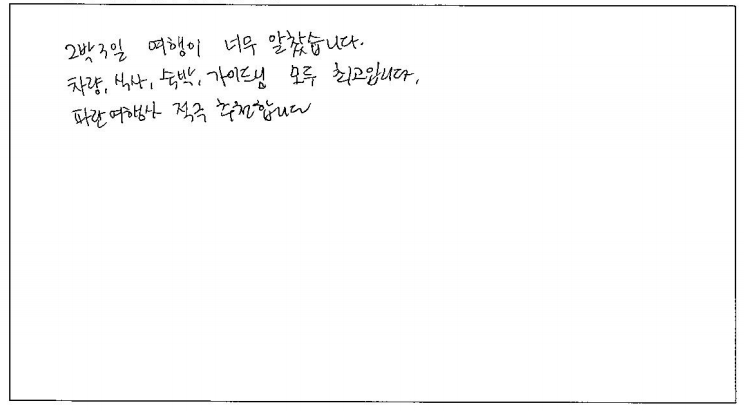 2박3일 여행이 너무 알찼습니다.
차량, 식사, 숙박, 가이드님 모두 최고입니다.
파란여행사 적극 추천합니다